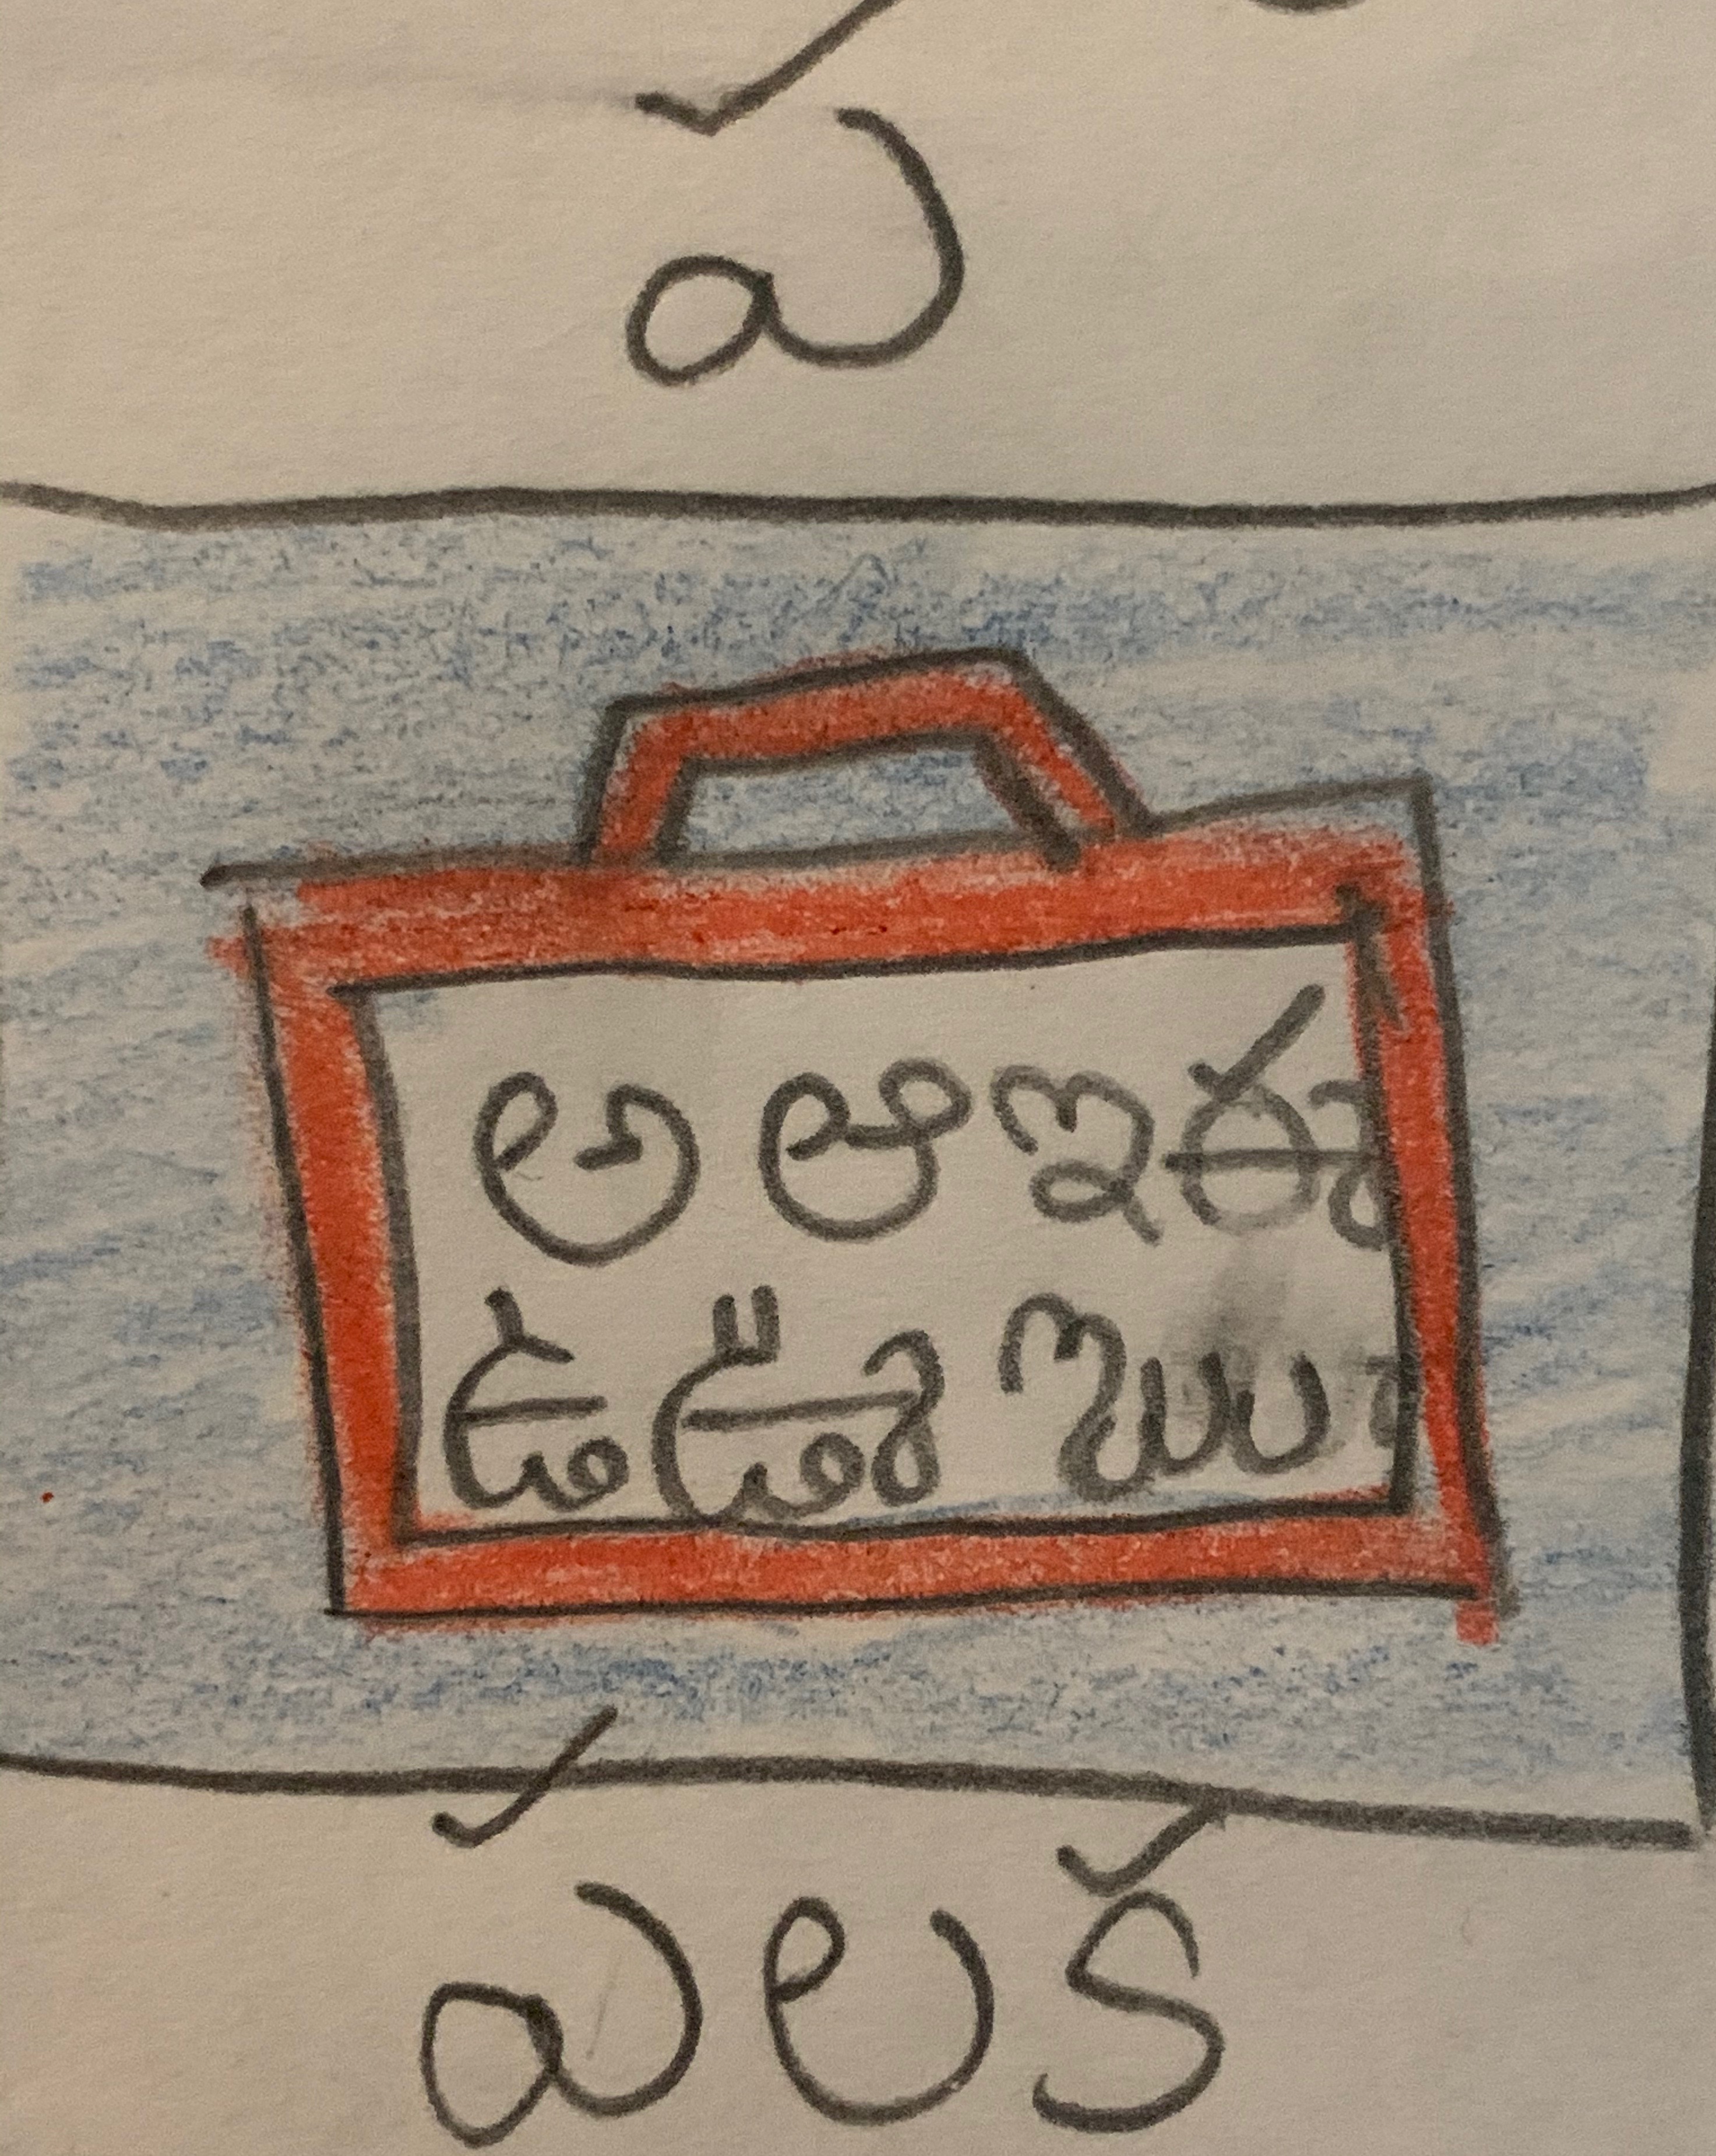 ప
అ ఆ ఇ ఈ
ఉ ఊ ఋ
పలక